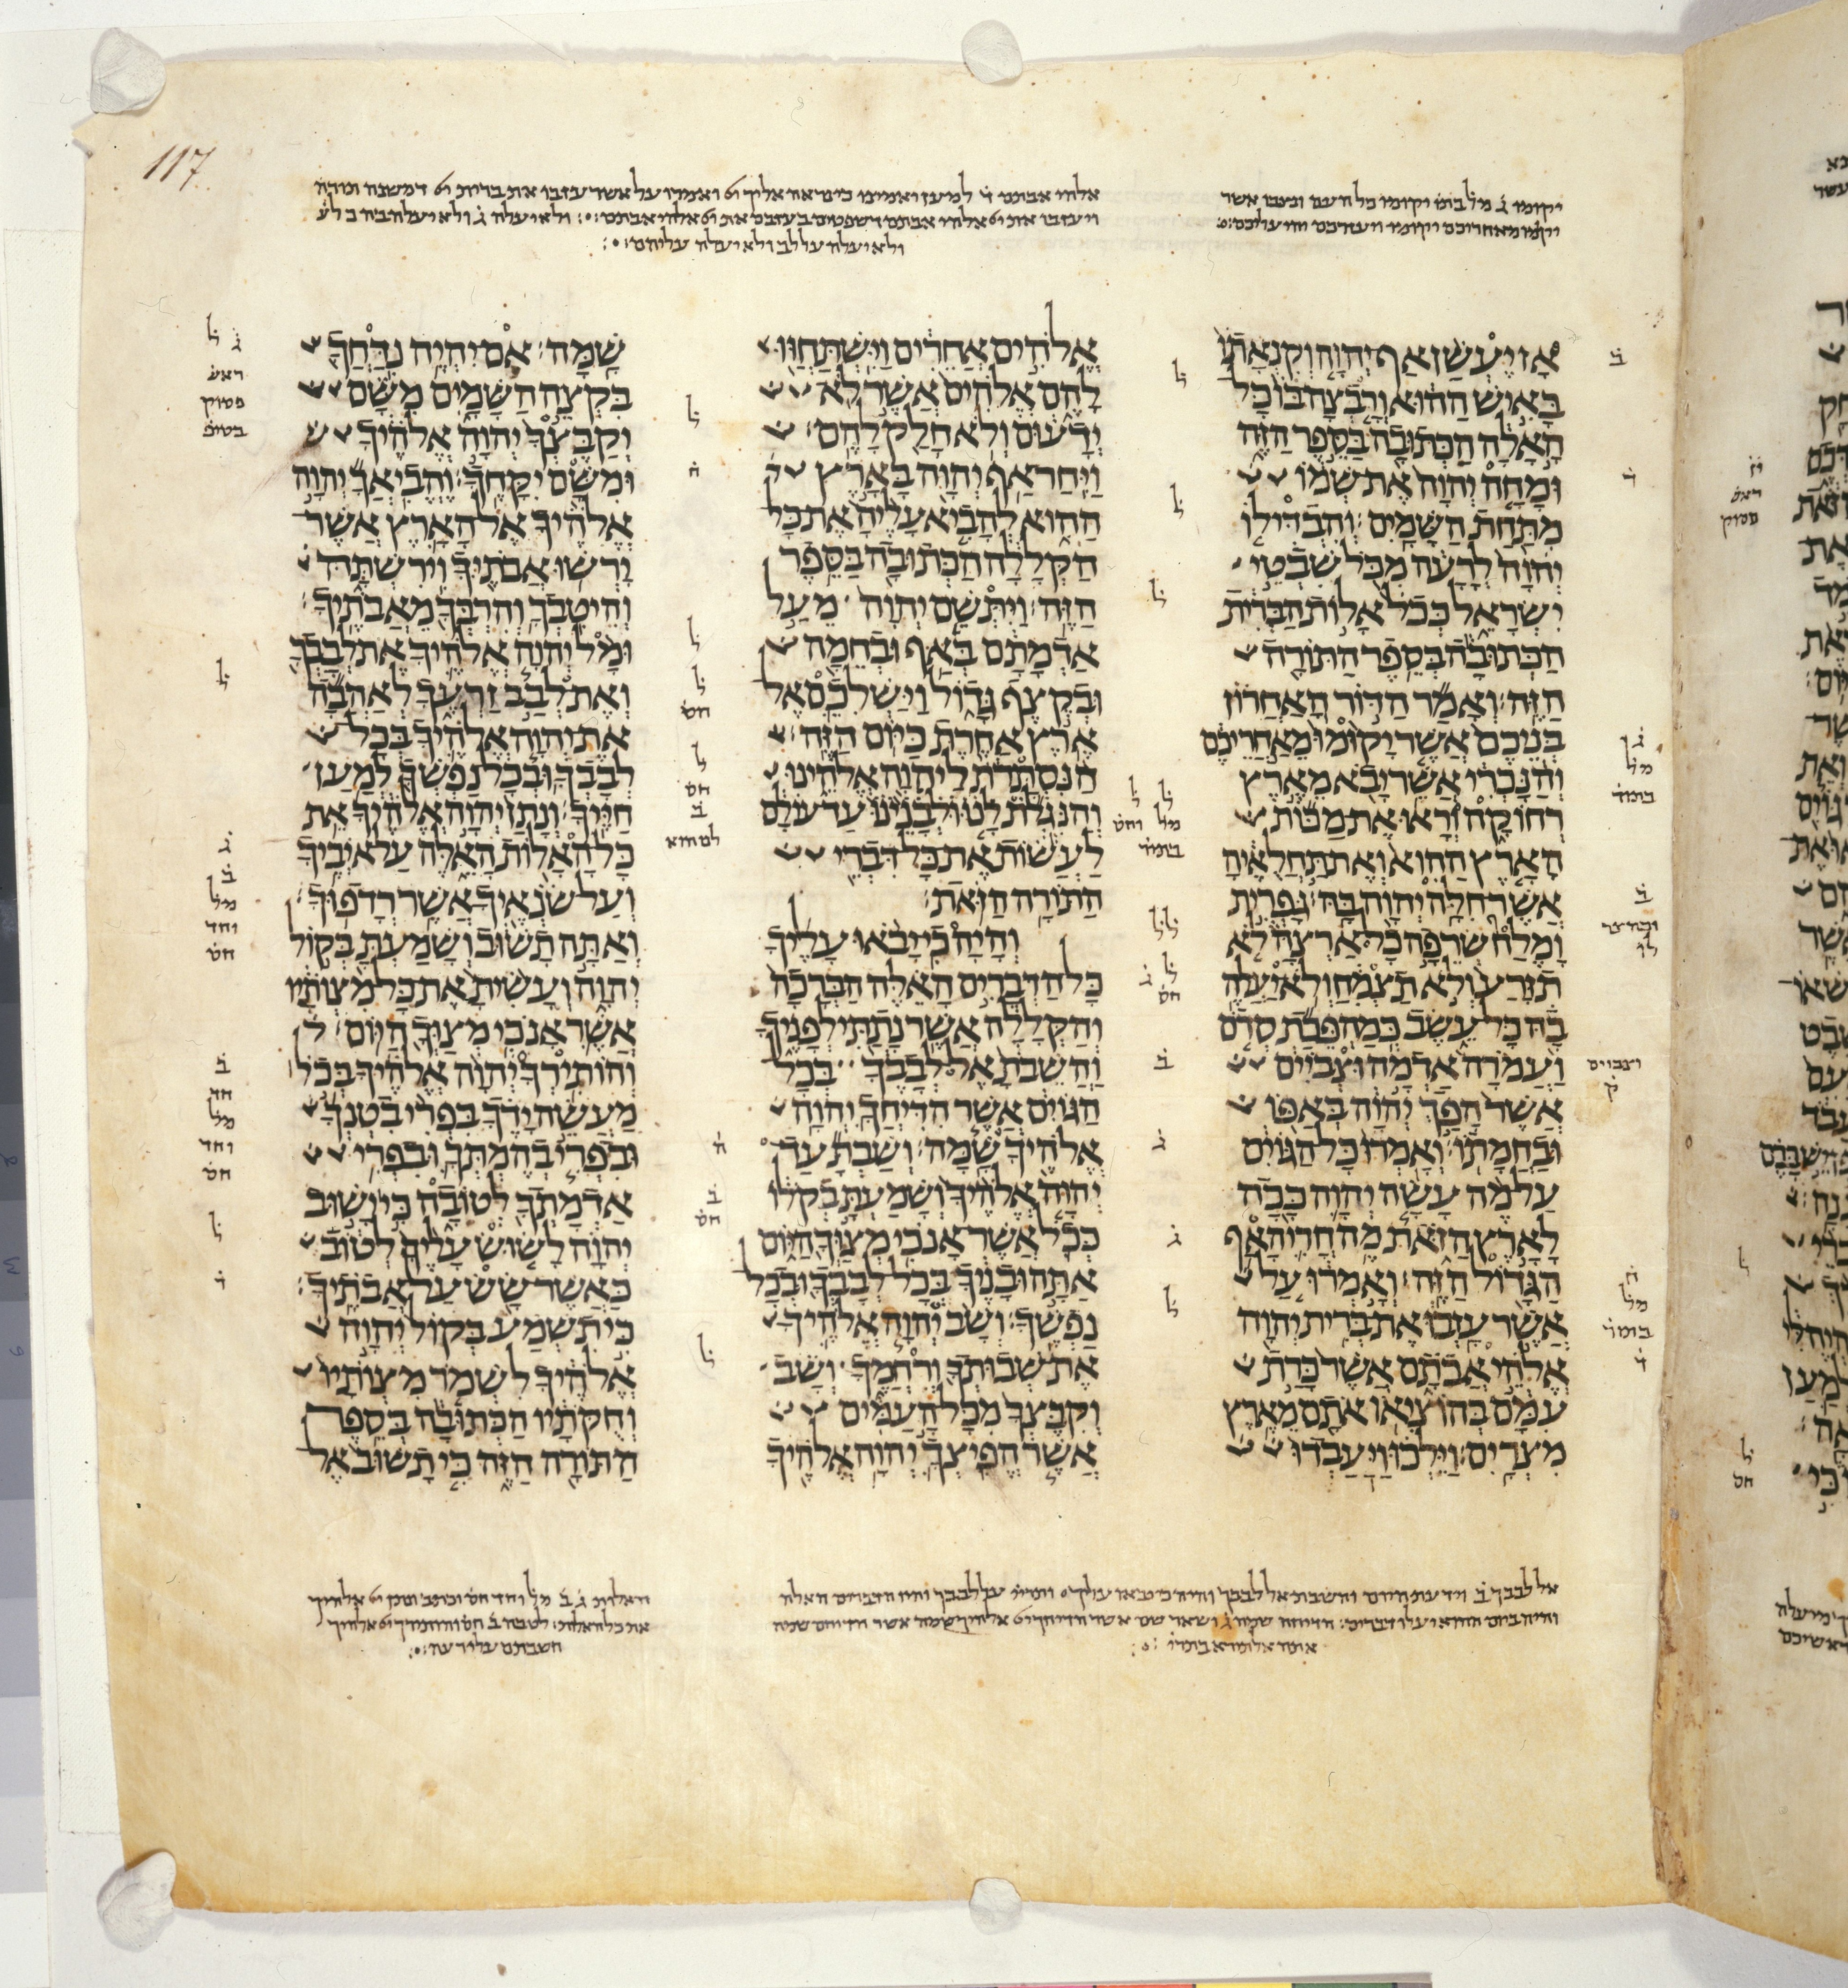 117
יקומו ג̇ מל בתו̇ יקומו כל העם ונצבו אשר
יקמו מאחריכם יקומו ויעזרכם יהי עליכם
אלהי אבתם ד̇ למען יאמינו כי נראה אליך יי ואמרו על אשר עזבו את ברית יי דמשנה תורה
ויעזבו את יי אלהי אבתם דשפטים בעזבם את יי אלהי אבתם ולא יעלה ג̇ ולא יעלה בה כל ע̇
ולא יעלה על לב ולא יעלה עליהם
אָז יֶעְשַׁן אַף יְהוָה וְקִנְאָתוֹ
בָּאִישׁ הַהוּא וְרָבְצָה בּוֹ כָּל
הָאָלָה הַכְּתוּבָה בַּסֵּפֶר הַזֶּה
וּמָחָה יְהוָה אֶת שְׁמוֹ
מִתַּחַת הַשָּׁמָיִם׃ וְהִבְדִּילוֹ
יְהוָה לְרָעָה מִכֹּל שִׁבְטֵי
יִשְׂרָאֵל כְּכֹל אָלוֹת הַבְּרִית
הַכְּתוּבָה בְּסֵפֶר הַתּוֹרָה
הַזֶּה׃ וְאָמַר הַדּוֹר הָאַחֲרוֹן
בְּנֵיכֶם אֲשֶׁר יָקוּמוּ מֵאַחֲרֵיכֶם
וְהַנָּכְרִי אֲשֶׁר יָבֹא מֵאֶרֶץ
רְחוֹקָה וְרָאוּ אֶת מַכּוֹת
הָאָרֶץ הַהִוא וְאֶת תַּחֲלֻאֶיהָ
אֲשֶׁר חִלָּה יְהוָה בָּהּ׃ גָּפְרִית
וָמֶלַח שְׂרֵפָה כָל אַרְצָהּ לֹא
תִזָּרַע וְלֹא תַצְמִחַ וְלֹא יַעֲלֶה
בָהּ כָּל עֵשֶׂב כְּמַהְפֵּכַת סְדֹם
וַעֲמֹרָה אַדְמָה וּצְבֹיִים
אֲשֶׁר הָפַךְ יְהוָה בְּאַפּוֹ
וּבַחֲמָתוֹ׃ וְאָמְרוּ כָּל הַגּוֹיִם
עַל מֶה עָשָׂה יְהוָה כָּכָה
לָאָרֶץ הַזֹּאת מֶה חֳרִי הָאַף
הַגָּדוֹל הַזֶּה׃ וְאָמְרוּ עַל
אֲשֶׁר עָזְבוּ אֶת בְּרִית יְהוָה
אֱלֹהֵי אֲבֹתָם אֲשֶׁר כָּרַת
עִמָּם בְּהוֹצִיאוֹ אֹתָם מֵאֶרֶץ
מִצְרָיִם׃ וַיֵּלְכוּ וַיַּעַבְדוּ
אֱלֹהִים אֲחֵרִים וַיִּשְׁתַּחֲוּוּ
לָהֶם אֱלֹהִים אֲשֶׁר לֹא
יְדָעוּם וְלֹא חָלַק לָהֶם׃
וַיִּחַר אַף יְהוָה בָּאָרֶץ
הַהִוא לְהָבִיא עָלֶיהָ אֶת כָּל
הַקְּלָלָה הַכְּתוּבָה בַּסֵּפֶר
הַזֶּה׃ וַיִּתְּשֵׁם יְהוָה מֵעַל
אַדְמָתָם בְּאַף וּבְחֵמָה
וּבְקֶצֶף גָּדוֹל וַיַּשְׁלִכֵם אֶל
אֶרֶץ אַחֶרֶת כַּיּוֹם הַזֶּה׃
הַנִּסְתָּרֹת לַיהוָה אֱלֹהֵינוּ
וְהַנִּגְלֹת לָנוּ וּלְבָנֵינוּ עַד עוֹלָם
לַעֲשׂוֹת אֶת כָּל דִּבְרֵי
הַתּוֹרָה הַזֹּאת׃
וְהָיָה כִי יָבֹאוּ עָלֶיךָ
כָּל הַדְּבָרִים הָאֵלֶּה הַבְּרָכָה
וְהַקְּלָלָה אֲשֶׁר נָתַתִּי לְפָנֶיךָ
וַהֲשֵׁבֹתָ אֶל לְבָבֶךָ בְּכָל
הַגּוֹיִם אֲשֶׁר הִדִּיחֲךָ יְהוָה
אֱלֹהֶיךָ שָׁמָּה׃ וְשַׁבְתָּ עַד
יְהוָה אֱלֹהֶיךָ וְשָׁמַעְתָּ בְקֹלוֹ
כְּכֹל אֲשֶׁר אָנֹכִי מְצַוְּךָ הַיּוֹם
אַתָּה וּבָנֶיךָ בְּכָל לְבָבְךָ וּבְכָל
נַפְשֶׁךָ׃ וְשָׁב יְהוָה אֱלֹהֶיךָ
אֶת שְׁבוּתְךָ וְרִחֲמֶךָ וְשָׁב
וְקִבֶּצְךָ מִכָּל הָעַמִּים
אֲשֶׁר הֱפִיצְךָ יְהוָה אֱלֹהֶיךָ
שָׁמָּה׃ אִם יִהְיֶה נִדַּחֲךָ
בִּקְצֵה הַשָּׁמָיִם מִשָּׁם
יְקַבֶּצְךָ יְהוָה אֱלֹהֶיךָ
וּמִשָּׁם יִקָּחֶךָ׃ וֶהֱבִיאֲךָ יְהוָה
אֱלֹהֶיךָ אֶל הָאָרֶץ אֲשֶׁר
יָרְשׁוּ אֲבֹתֶיךָ וִירִשְׁתָּהּ
וְהֵיטִבְךָ וְהִרְבְּךָ מֵאֲבֹתֶיךָ׃
וּמָל יְהוָה אֱלֹהֶיךָ אֶת לְבָבְךָ
וְאֶת לְבַב זַרְעֶךָ לְאַהֲבָה
אֶת יְהוָה אֱלֹהֶיךָ בְּכָל
לְבָבְךָ וּבְכָל נַפְשְׁךָ לְמַעַן
חַיֶּיךָ׃ וְנָתַן יְהוָה אֱלֹהֶיךָ אֵת
כָּל הָאָלוֹת הָאֵלֶּה עַל אֹיְבֶיךָ
וְעַל שֹׂנְאֶיךָ אֲשֶׁר רְדָפוּךָ׃
וְאַתָּה תָשׁוּב וְשָׁמַעְתָּ בְּקוֹל
יְהוָה וְעָשִׂיתָ אֶת כָּל מִצְוֺתָיו
אֲשֶׁר אָנֹכִי מְצַוְּךָ הַיּוֹם׃
וְהוֹתִירְךָ יְהוָה אֱלֹהֶיךָ בְּכֹל
מַעֲשֵׂה יָדֶךָ בִּפְרִי בִטְנְךָ
וּבִפְרִי בְהֶמְתְּךָ וּבִפְרִי
אַדְמָתְךָ לְטוֹבָה כִּי יָשׁוּב
יְהוָה לָשׂוּשׂ עָלֶיךָ לְטוֹב
כַּאֲשֶׁר שָׂשׂ עַל אֲבֹתֶיךָ׃
כִּי תִשְׁמַע בְּקוֹל יְהוָה
אֱלֹהֶיךָ לִשְׁמֹר מִצְוֺתָיו
וְחֻקֹּתָיו הַכְּתוּבָה בְּסֵפֶר
הַתּוֹרָה הַזֶּה כִּי תָשׁוּב אֶל
אל לבבך ב̇ וידעת היום והשבת אל לבבך והיה כי יבאו עליך
והיה ביום ההוא יעלו דברים
האלות
חשבתם עלי רעה